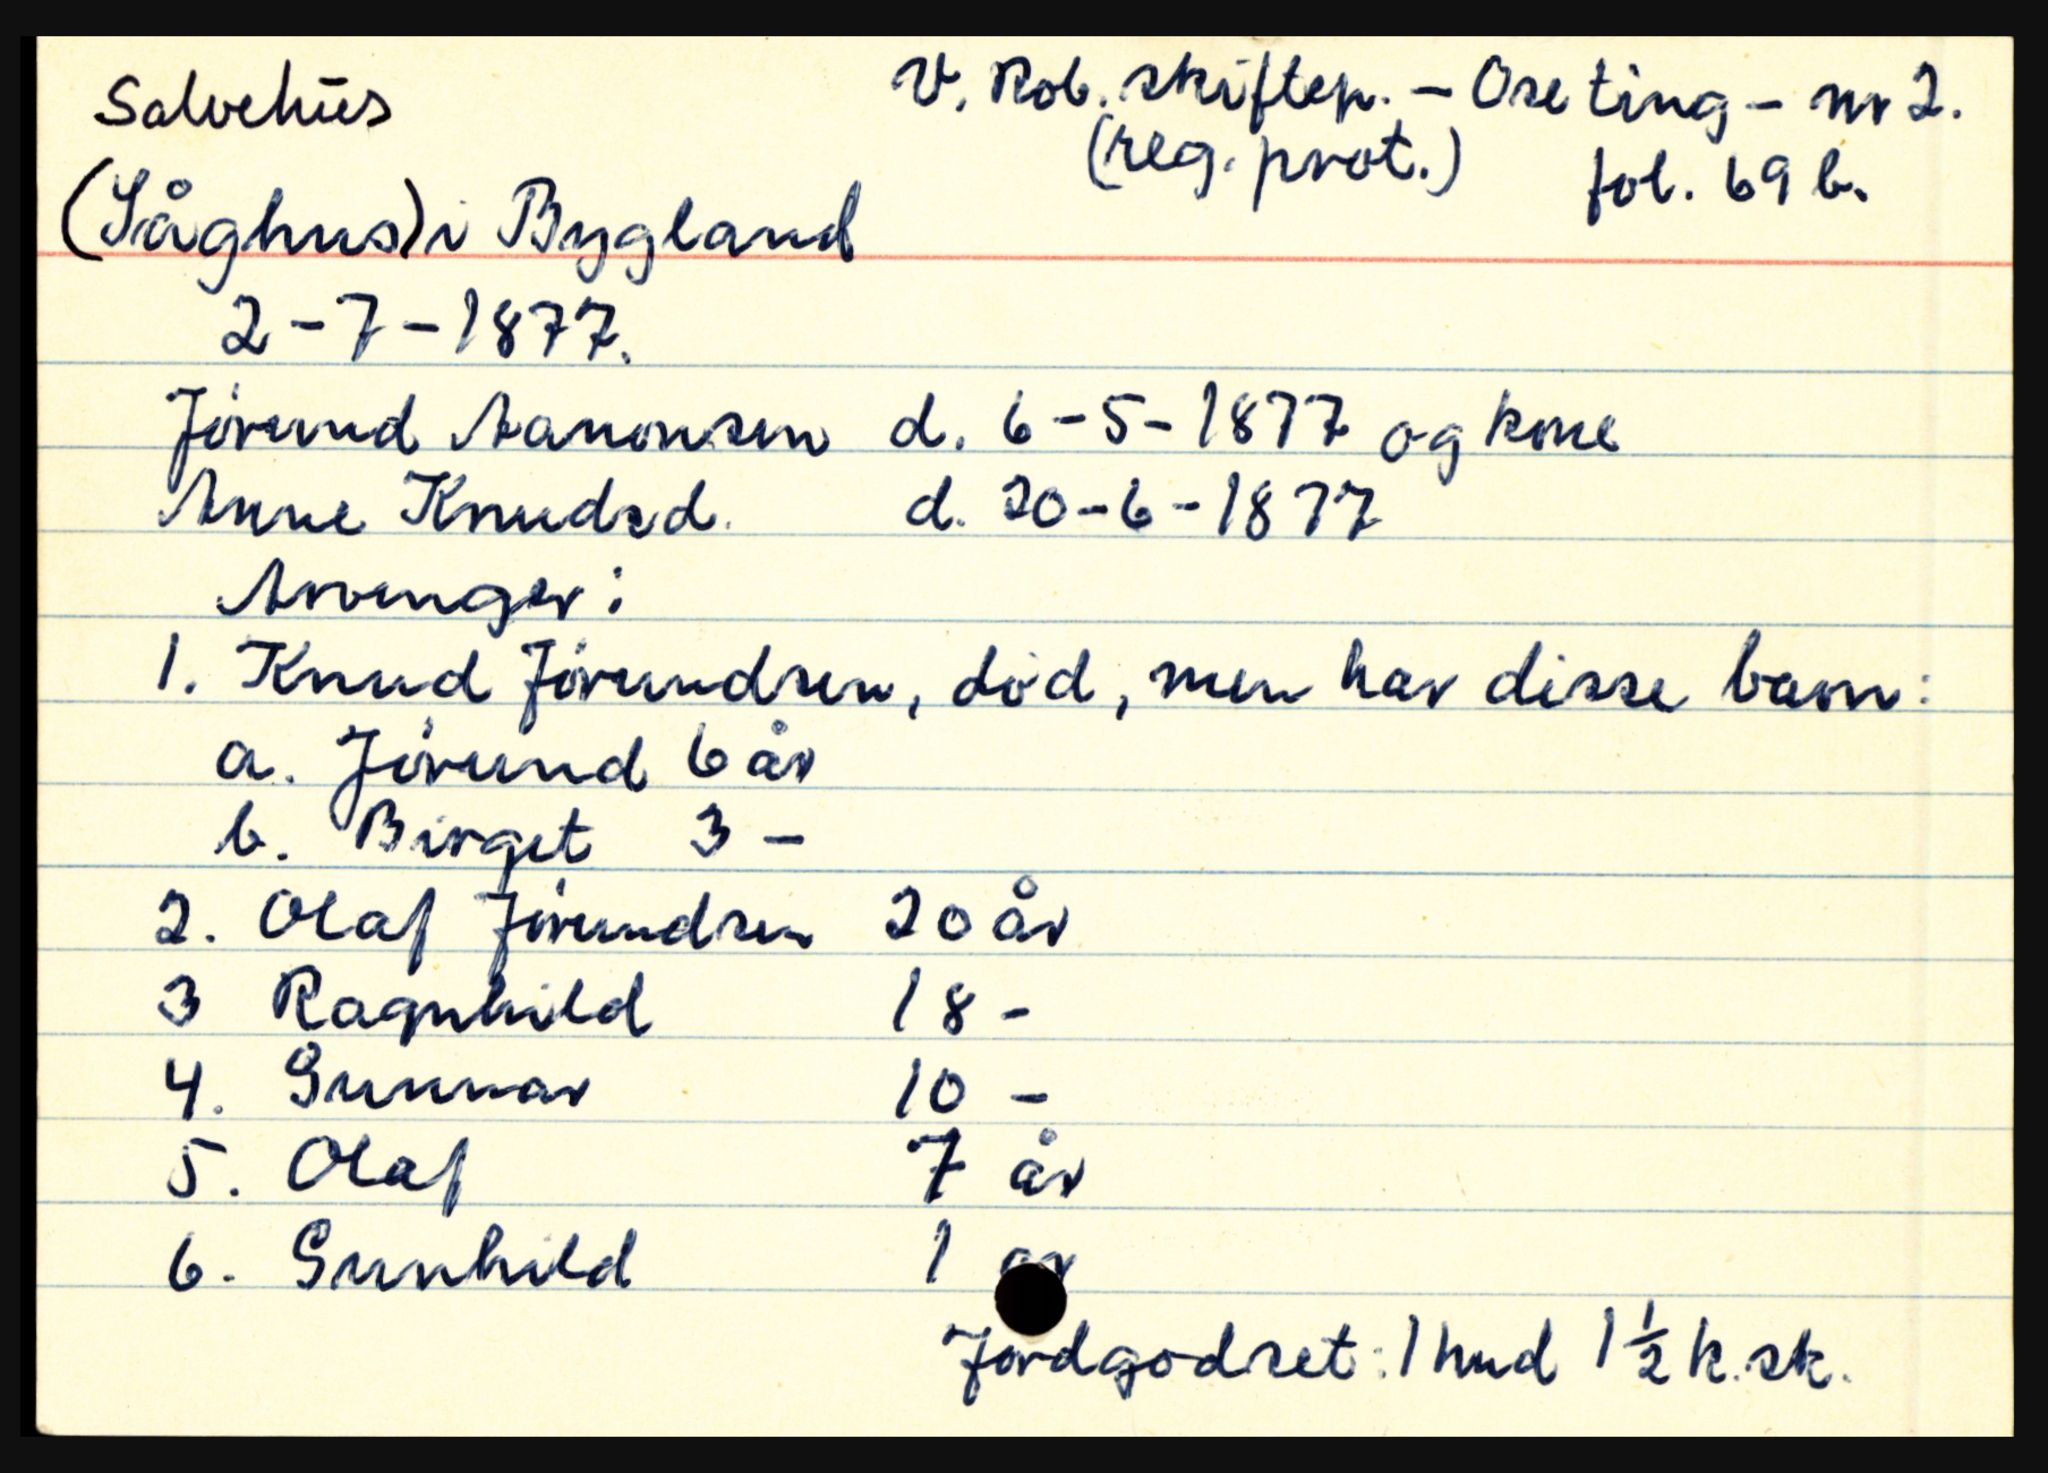 Salvehūs
V. Rob. skiftep. - Ose ting - nr 2.
(reg. prot.) fol. 69 b.
(Såghus) i Bygland
2-7-1877.
Jórund Aanonsen d. 6-5-1877 og kone
Anne Knudsd. d. 20-6-1877
Arvinger:
1. Knud Jórundsen, död, men har disse barn:
a. Jórund 6 år
b. Birget 3 -
2. Olaf Jórundsen 20 år
3 Ragnhild 18 -
4. Gunnar 10 -
5. Olaf 7 år
6. Gunhild 1 år
Jordgodset: 1 hud 1 ½ k. sk.